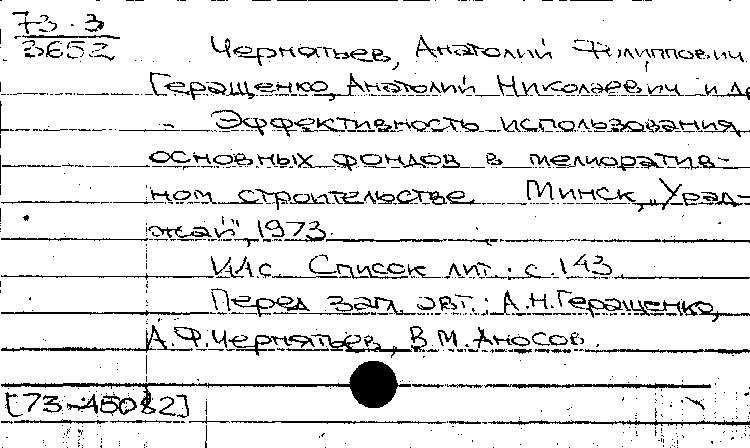 73-3
3652
Чернятьев, Анатолий Филиппович
Геращенко, Анатолий Николаевич и др
- Эффективность использования
основных фондов в мелиоратив-
ном строительстве. Минск, "Урад-
жай", 1973.
144с. Список лит.: с. 143.
Перед загл. авт.: А.Н.Геращенко,
А.Ф.Чернятьев, В.М.Аносов.
[73-45082]